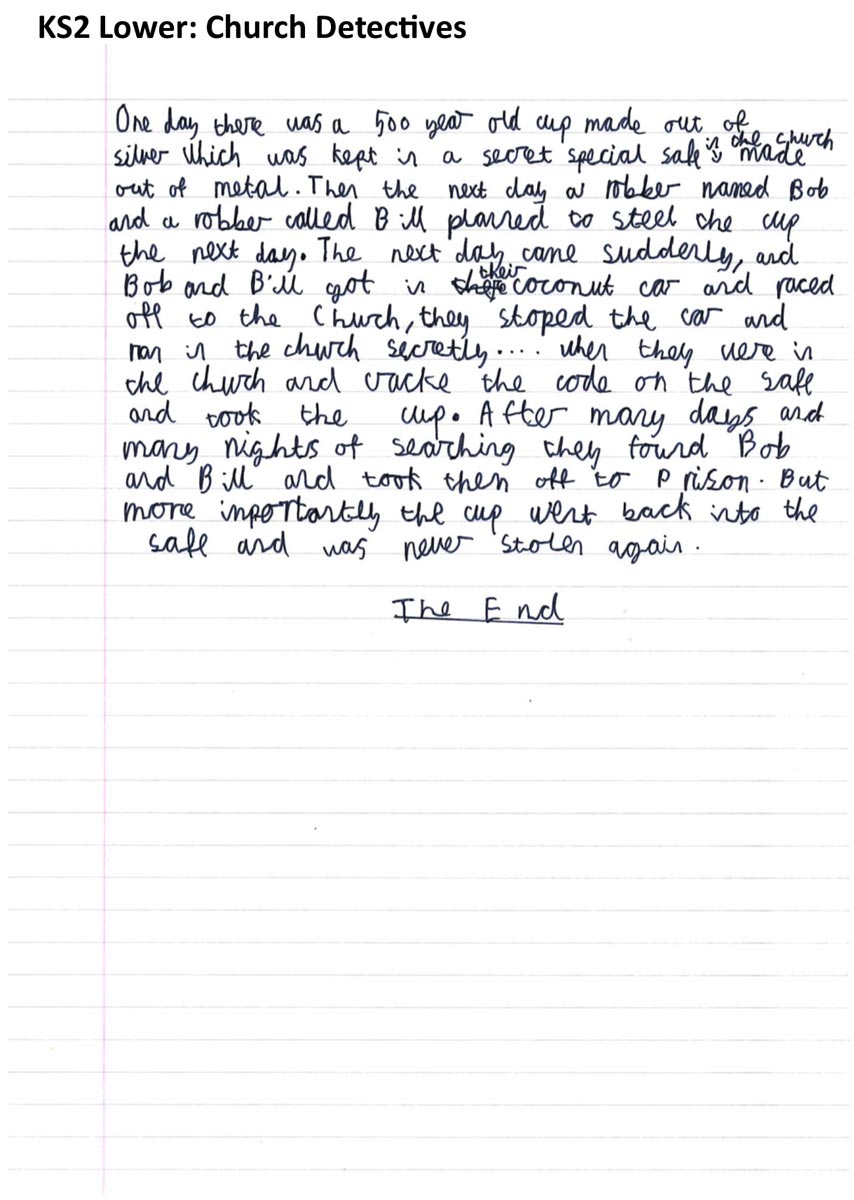 KS2 Lower: Church Detectives
One day there was a 500 year old cup made out of
silver which was kept in a secret special safe in the church made
out of metal. Then the next day a robber named Bob
and a robber called Bill planned to steel the cup
the next day. The next day came suddenly, and
Bob and Bill got in their coconut car and raced
off to the Church, they stoped the car and
ran in the church secretly.... when they were in
the church and cracke the code on the safe
and took the cup. After many days and
many nights of searching they found Bob
and Bill and took them off to Prison. But
more inportantly the cup went back into the
safe and was never stolen again.
The End